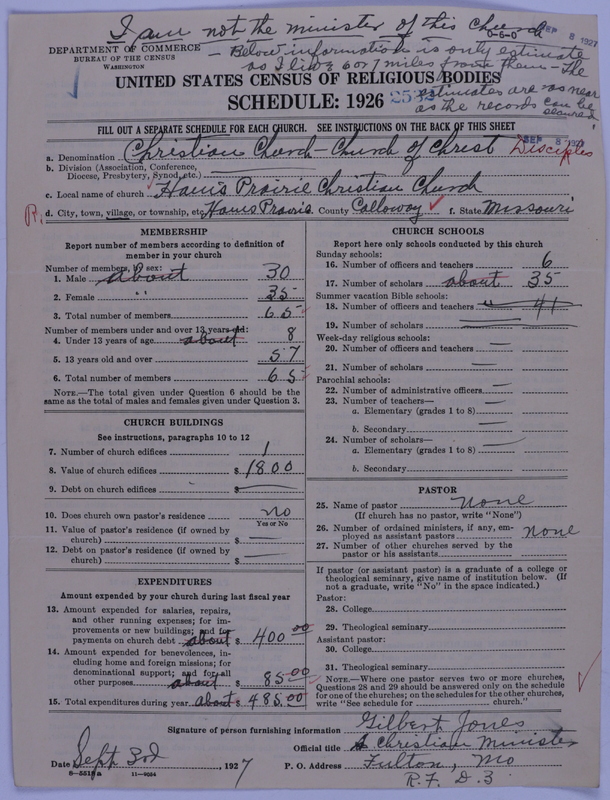 I am not the minister of this church
0-6-0 SEP 8 1927
DEPARTMENT OF COMMERCE
BUREAU OF THE CENSUS
WASHINGTON
— Below information is only estimate
as I live 6 or 7 miles from them — The
estimates are as near
as the records can be
secured
UNITED STATES CENSUS OF RELIGIOUS BODIES
SCHEDULE: 1926
FILL OUT A SEPARATE SCHEDULE FOR EACH CHURCH. SEE INSTRUCTIONS ON THE BACK OF THIS SHEET
SEP 8 1927
a. Denomination Christian Church — Church of Christ Disciples
b. Division (Association, Conference,
Diocese, Presbytery, Synod, etc.)
c. Local name of church Hams Prairie Christian Church
R. d. City, town, village, or township, etc. Hams Prairie County Calloway f. State Missouri
MEMBERSHIP
Report number of members according to definition of
member in your church
Number of members, by sex:
1. Male about 30
2. Female " 35
3. Total number of members 65
Number of members under and over 13 years old:
4. Under 13 years of age about 8
5. 13 years old and over 57
6. Total number of members 65
NOTE.—The total given under Question 6 should be
same as the total of males and females given under Question 3.
CHURCH BUILDINGS
See instructions, paragraphs 10 to 12
7. Number of church edifices 1
8. Value of church edifices $ 1800
9. Debt on church edifices $ —
10. Does church own pastor's residence no
Yes or No
11. Value of pastor's residence (if owned by
church) $ —
12. Debt on pastor's residence (if owned by
church) $ —
EXPENDITURES
Amount expended by your church during last fiscal year
13. Amount expended for salaries, repairs,
and other running expenses; for im-
provements or new buildings; and for
payments on church debt about $ 400 00
14. Amount expended for benevolences, in-
cluding home and foreign missions; for
denominational support; and for all
other purposes about $ 85 00
15. Total expenditures during year about $ 485.00
CHURCH SCHOOLS
Report here only schools conducted by this church
Sunday schools:
16. Number of officers and teachers 6
17. Number of scholars about 35
Summer vacation Bible schools:
18. Number of officers and teachers " 41
19. Number of scholars —
Week-day religious schools:
20. Number of officers and teachers —
21. Number of scholars —
Parochial schools:
22. Number of administrative officers —
23. Number of teachers—
a. Elementary (grades 1 to 8) —
b. Secondary —
24. Number of scholars—
a. Elementary (grades 1 to 8) —
b. Secondary
PASTOR
25. Name of pastor none
(If church has no pastor, write "None")
26. Number of ordained ministers, if any, em-
ployed as assistant pastors none
27. Number of other churches served by the
pastor or his assistants
If pastor (or assistant pastor) is a graduate of a college or
theological seminary, give name of institution below. (If
not a graduate, write "No" in the space indicated.)
Pastor:
28. College
29. Theological seminary
Assistant pastor:
30. College
31. Theological seminary
NOTE.—Where one pastor serves two or more churches,
Questions 28 and 29 should be answered only on the schedule
for one of the churches; on the schedules for the other churches,
write "See schedule for church."
Signature of person furnishing information Gilbert Jones
Official title A Christian Minister
Date Sept 3rd, 1927 P. O. Address Fulton, Mo
R. F. D. 3
11-9054